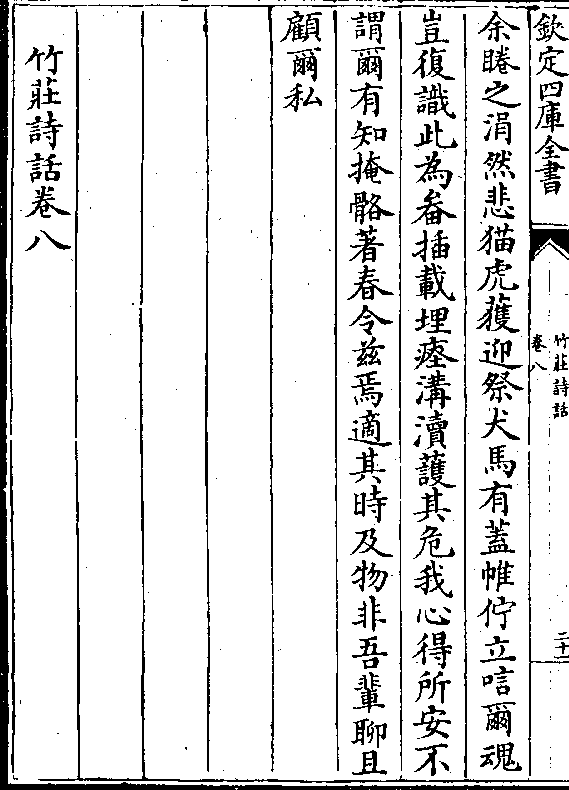 欽定四庫全書
竹莊詩話
卷八
二十一
余睠之涓然悲猫虎䕶迎祭犬馬有蓋帷佇立唁爾魂
豈復識此為畚插載埋瘞溝瀆䕶其危我心得所安不
謂爾有知掩骼著春令兹焉適其時及物非吾輩聊且
顧爾私
竹莊詩話卷八